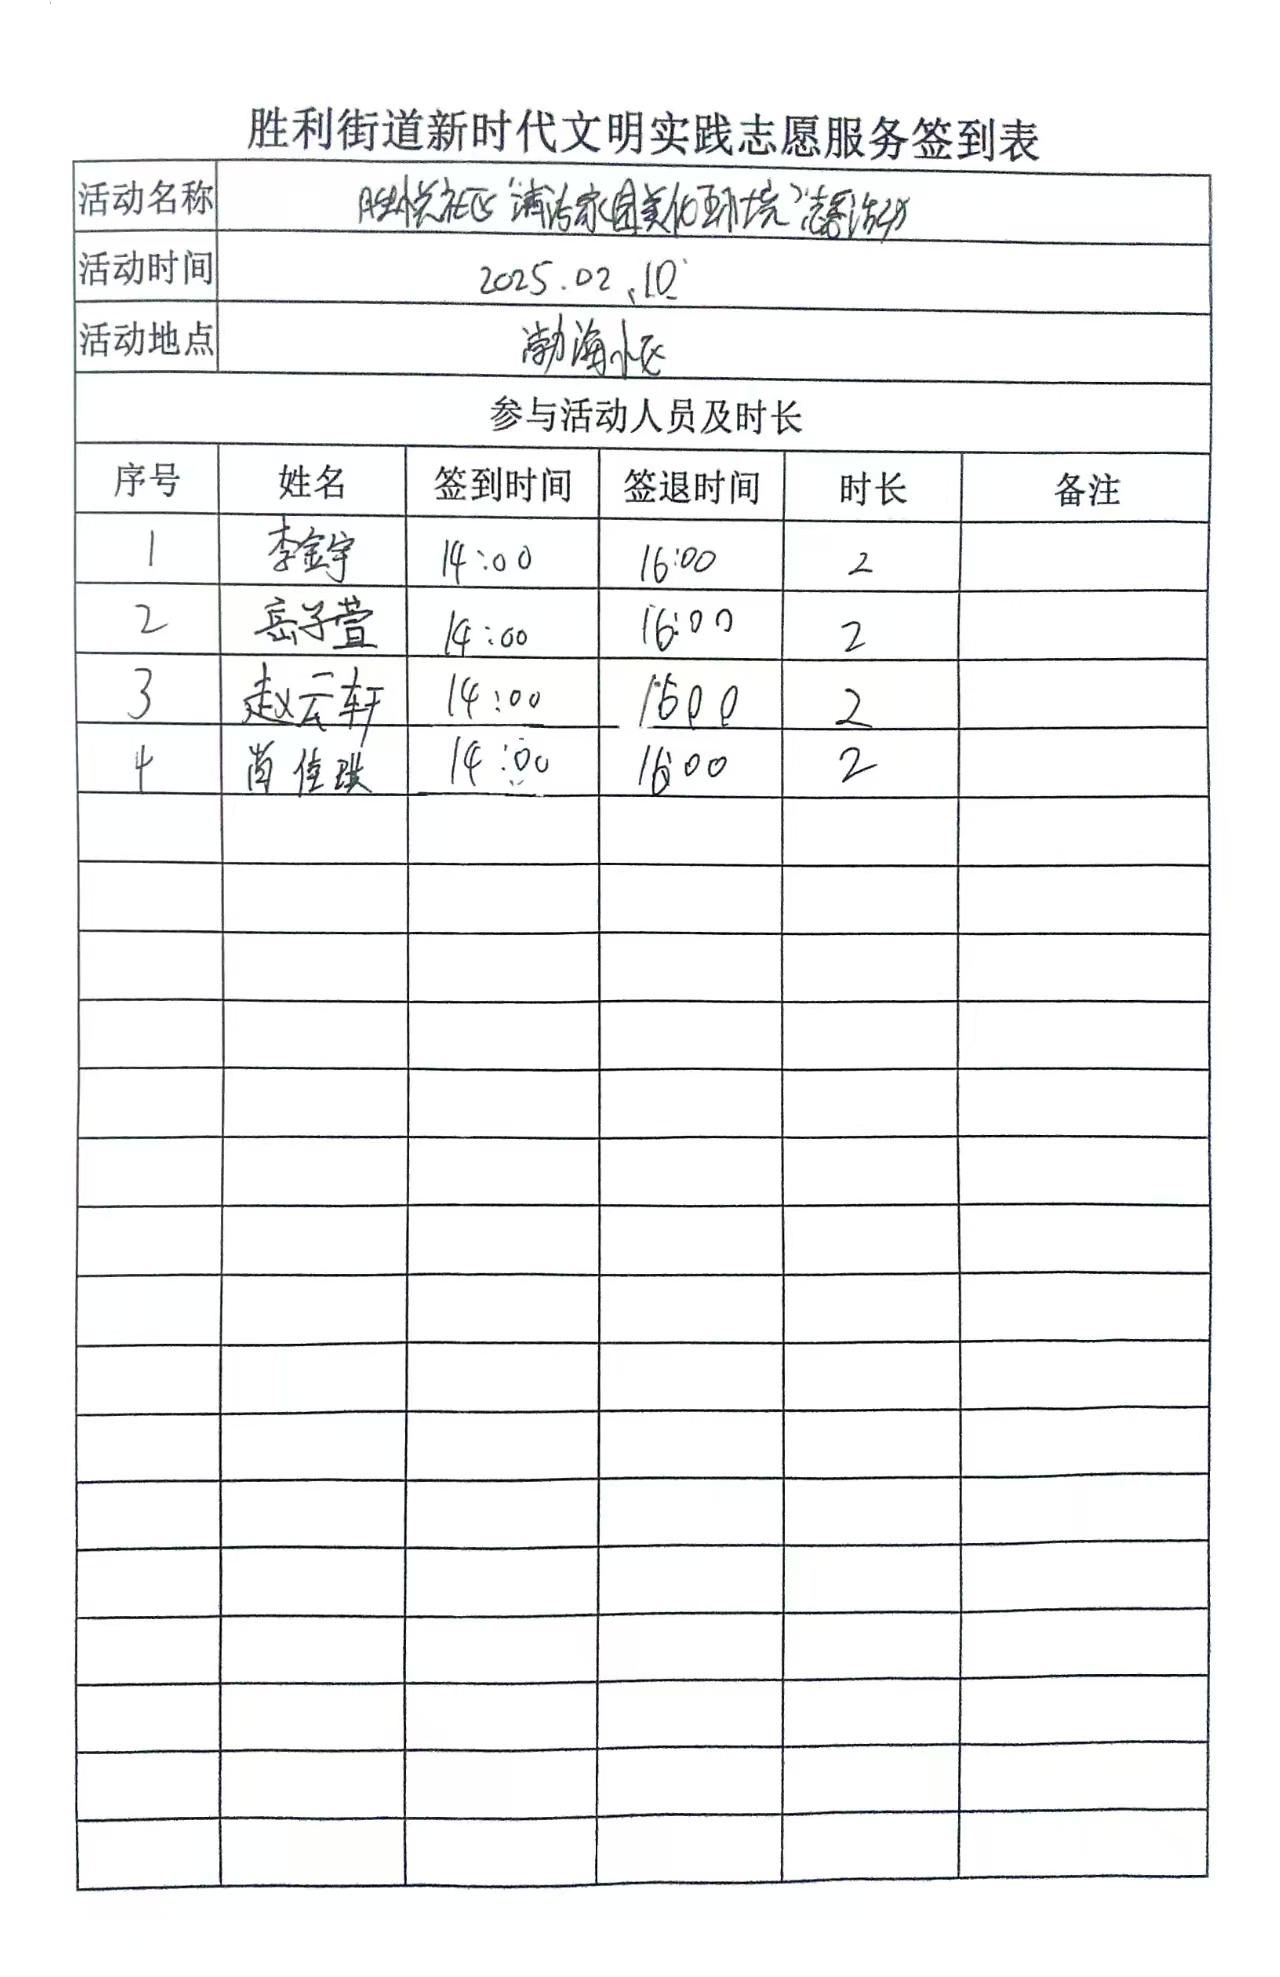 胜利街道新时代文明实践志愿服务签到表
活动名称 胜悦社区“清洁家园美化环境”志愿活动
活动时间 2025.02.10
活动地点 渤海小区
参与活动人员及时长
序号 姓名 签到时间 签退时间 时长 备注
1 李金宇 14:00 16:00 2
2 岳子萱 14:00 16:00 2
3 赵云轩 14:00 16:00 2
4 佳琪 14:00 16:00 2